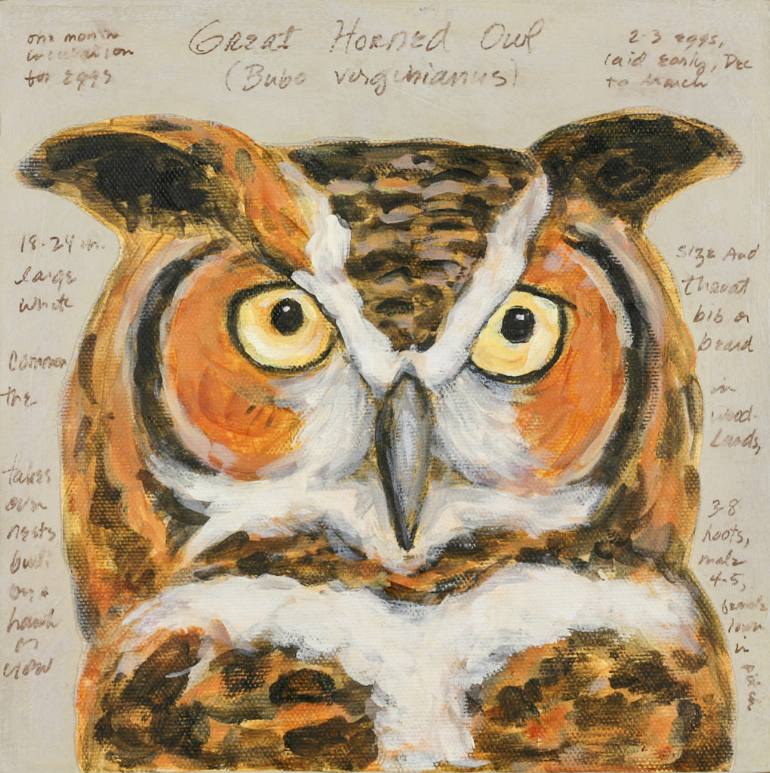 Great Horned Owl
(Bubo virginianus)
one month
incubation
for eggs
2-3 eggs,
laid early, Dec
to March
18-24 in.
large
white
Common
the
takes
over
nests
built
by a
hawk
or
crow
size and
throat
bib or
beard
in
wood-
lands,
3-8
hoots,
male
4-5,
female
lower
in